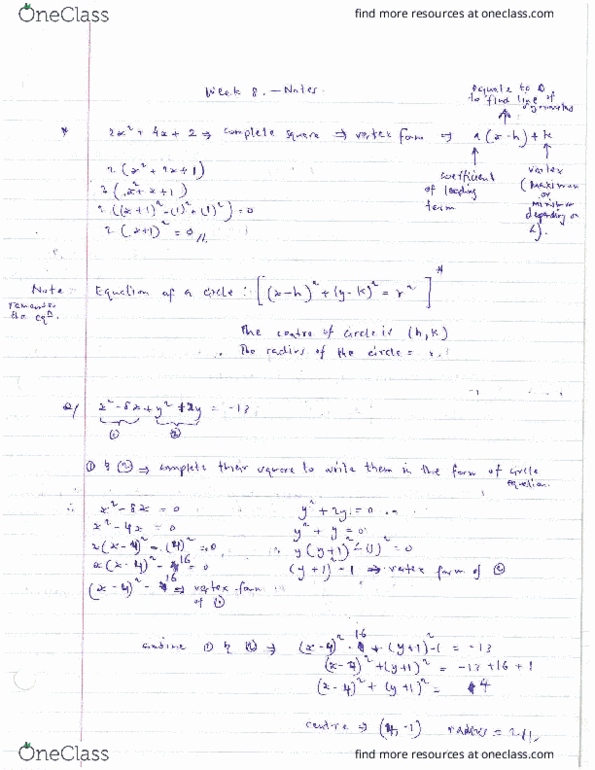 OneClass
find more resources at oneclass.com
Week 8. - Notes.
equate to 0
to find line of
symmetry
* 2x² + 4x + 2 ⇒ complete square ⇒ vertex form ⇒ a(x-h)+k
2(x² + 2x + 1)
2(x² + x + 1)
2((x+1)² - (1)² + (1)²) = 0
2(x+1)² = 0
coefficient
of leading
term
vertex
(maximum
or
minimum
depending on
Note: Equation of a circle: [(x-h)² + (y-k)² = r²]*
remember
the eqn.
The centre of circle is (h, k)
The radius of the circle = r.
Q/ x² - 8x + y² + 2y = -13
① ②
① & ② ⇒ complete their square to write them in the form of circle
equation.
∴ x² - 8x = 0 y² + 2y = 0
x² - 4x = 0 y² + y = 0
x(x-4)² - (4)² = 0 y(y+1)² - (1)² = 0
x(x-4)² - 16 = 0 (y+1)² - 1 ⇒ vertex form of ②
(x-4)² - 16 ⇒ vertex form
of ①
combine ① & ② ⇒ (x-4)² - 16 + (y+1)² - 1 = -13
(x-4)² + (y+1)² = -13 + 16 + 1
(x-4)² + (y+1)² = 4
centre ⇒ (4, -1) radius = 2//.
OneClass
find more resources at oneclass.com